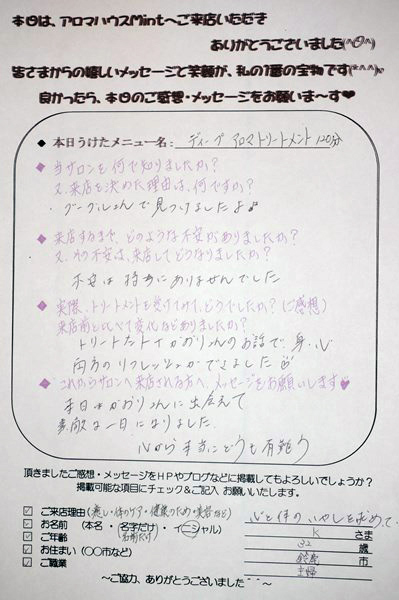 本日は、アロマハウスMintへご来店いただき
ありがとうございました(^o^)
皆さまからの嬉しいメッセージと笑顔が、私の1番の宝物です(*^^*)
良かったら、本日のご感想・メッセージをお願いま〜す♥
◆ 本日うけたメニュー名: ディープアロマトリートメント 120分
◆ 当サロンを何で知りましたか?
又、来店を決めた理由は、何ですか?
グーグルさんで見つけましたよ♪
◆ 来店するまで、どのような不安がありましたか?
又、その不安は、来店してどうなりましたか?
不安は特にありませんでした
◆ 実際、トリートメントを受けてみて、どうでしたか?(ご感想)
来店前とくらべて変化などありましたか?
トリートメント かおりさんのお話で、身・心
両方のリフレッシュができました
◆ これからサロンへ来店される方へ、メッセージをお願いします♥
本日は かおりさんに出会えて
素敵な一日になりました。
心から本当にとても有難う
頂きましたご感想・メッセージをHPやブログなどに掲載してもよろしいでしょうか?
掲載可能な項目にチェック&ご記入 お願いいたします。
☑ ご来店理由(癒し・体のケア・健康のため・美容など) 心と体のいやしを求めて
☑ お名前 (本名・名字だけ・名前だけ・イニシャル) K さま
☑ ご年齢 32 歳
☑ お住まい(〇〇市など) 鈴鹿 市
☑ ご職業 主婦
〜ご協力、ありがとうございました〜